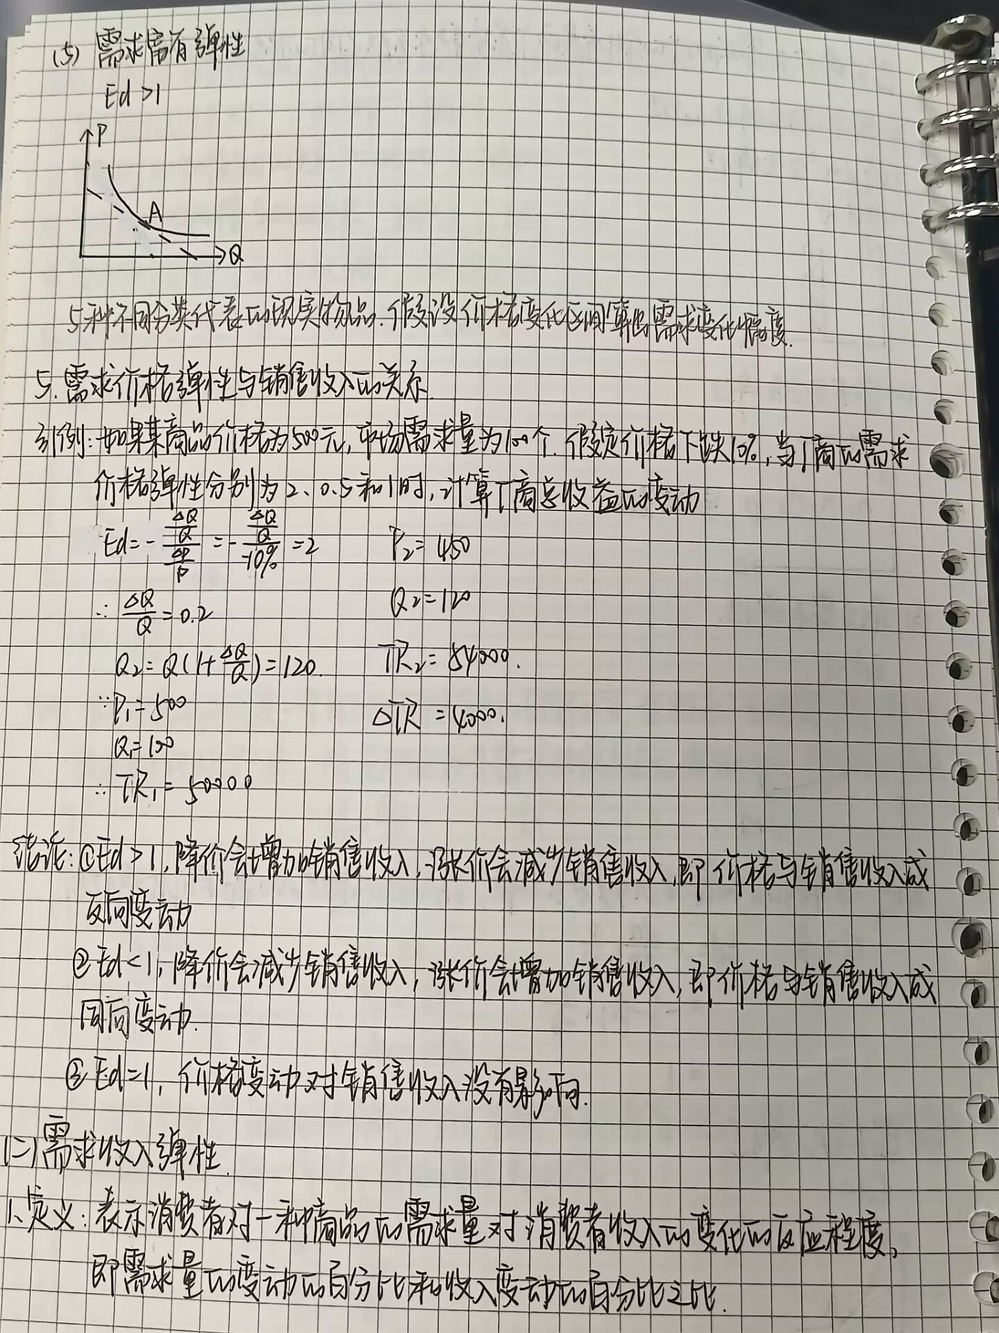 (5) 需求富有弹性
Ed>1
P
A
Q
5种不同分类代表的现实物品.假设价格变化区间算出需求变化幅度.
5.需求价格弹性与销售收入的关系.
引例:如果某商品价格为500元,市场需求量为100个.假定价格下跌10%,当厂商的需求
价格弹性分别为2、0.5和1时,计算厂商总收益的变动
Ed=-(ΔQ/Q)/(ΔP/P)=-(ΔQ/Q)/(-10%)=2
P₂=450
∴ ΔQ/Q=0.2
Q₂=120
Q₂=Q(1+ΔQ/Q)=120.
TR₂=54000.
∵P₁=500
ΔTR=4000.
Q₁=100
∴TR₁=50000
结论:①Ed>1,降价会增加销售收入,涨价会减少销售收入,即价格与销售收入成
反向变动
②Ed<1,降价会减少销售收入,涨价会增加销售收入,即价格与销售收入成
同向变动.
③Ed=1,价格变动对销售收入没有影响.
(二)需求收入弹性.
1.定义:表示消费者对一种商品的需求量对消费者收入的变化的反应程度,
即需求量的变动的百分比和收入变动的百分比之比.